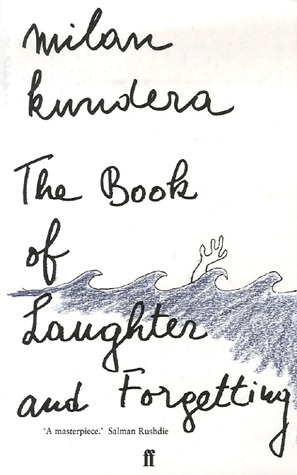 milan
kundera
The Book
of
Laughter
and Forgetting
'A masterpiece.' Salman Rushdie
ff